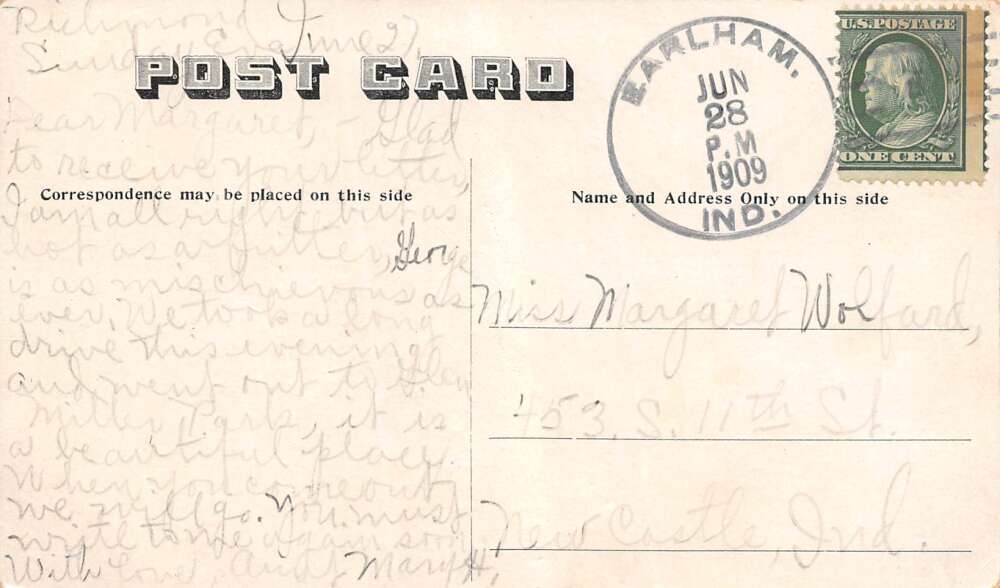 Richmond
Sunday Eve June 27,
POST CARD
Dear Margaret, - Glad
to receive your letter,
Correspondence may be placed on this side
I am all right but as
hot as a fritter, George
is as mischievous as
ever. We took a long
drive this evening
and went out to Glen
Miller Park, it is
a beautiful place
When you come out
we will go. You must
write to me again soon
With Love, Aunt Mary H,
EARLHAM.
JUN
28
P.M
1909
IND.
U.S. POSTAGE
ONE CENT
Name and Address Only on this side
Miss Margaret Wolfard,
453. S. 11th St.
New Castle, Ind.